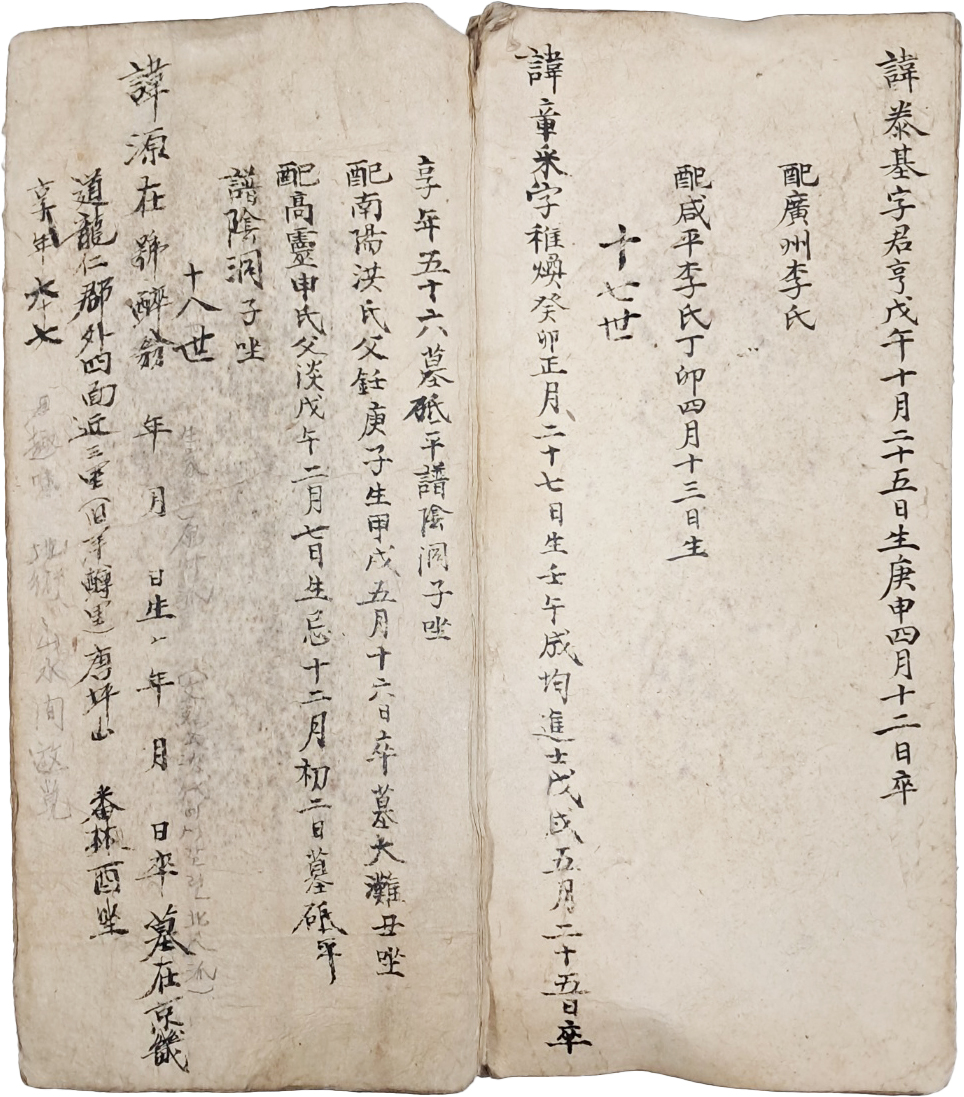 諱泰基字君亨戊午十月二十五日生庚申四月十二日卒
配廣州李氏
配咸平李氏丁卯四月十三日生
十七世
諱章采字稚煥癸卯正月二十七日生壬午成均進士戊戌五月二十五日卒
享年五十六墓砥平譜陰洞子坐
配南陽洪氏父鈺庚子生甲戌五月十六日卒墓大灘丑坐
配高靈申氏父淡戊午二月七日生忌十二月初二日墓砥平
譜陰洞子坐
十八世
諱源在號醉翁 年 月 日生 年 月 日卒墓在京畿
道龍仁郡外四面近三里 唐坪山 酉坐
享年六十七
山水間遊